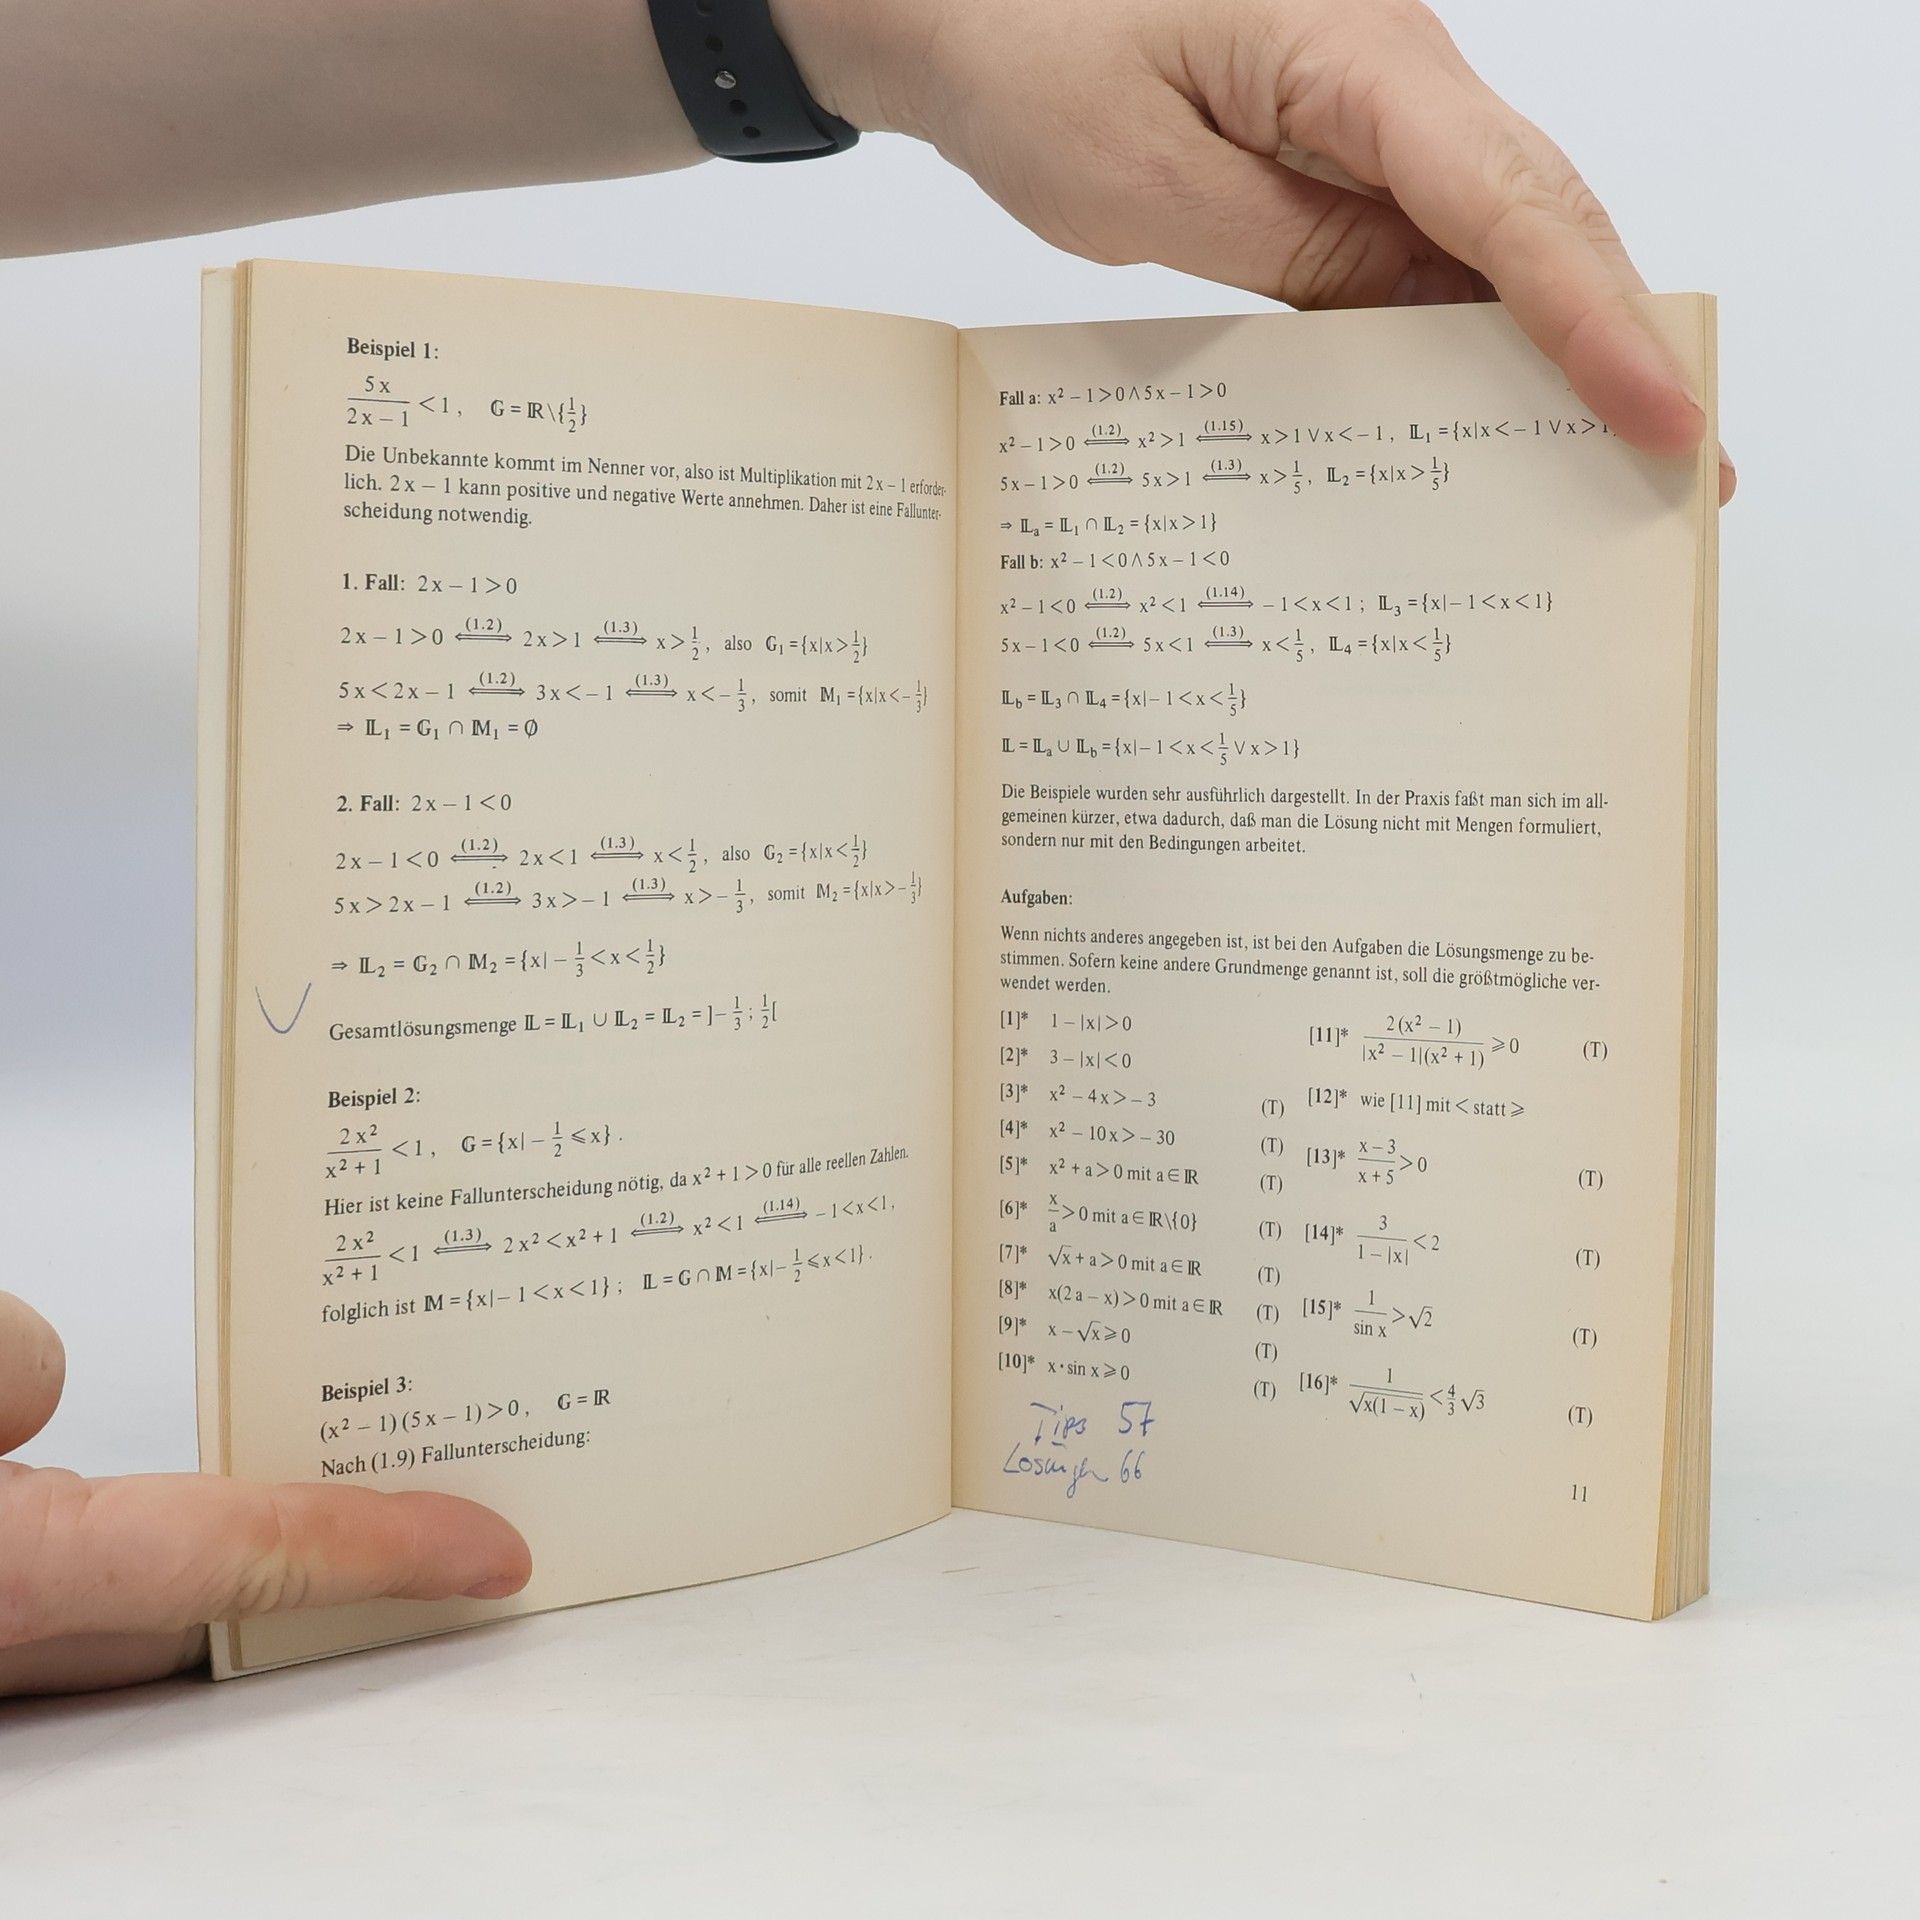 Beispiel 1:
5x/(2x − 1) < 1, G = ℝ\{1/2}
Die Unbekannte kommt im Nenner vor, also ist Multiplikation mit 2x − 1 erforder-
lich. 2x − 1 kann positive und negative Werte annehmen. Daher ist eine Fallunter-
scheidung notwendig.
1. Fall: 2x − 1 > 0
2x − 1 > 0 ⟺(1.2) 2x > 1 ⟺(1.3) x > 1/2, also G₁ = {x|x > 1/2}
5x < 2x − 1 ⟺(1.2) 3x < −1 ⟺(1.3) x < −1/3, somit M₁ = {x|x < −1/3}
⇒ 𝕃₁ = G₁ ∩ M₁ = ∅
2. Fall: 2x − 1 < 0
2x − 1 < 0 ⟺(1.2) 2x < 1 ⟺(1.3) x < 1/2, also G₂ = {x|x < 1/2}
5x > 2x − 1 ⟺(1.2) 3x > −1 ⟺(1.3) x > −1/3, somit M₂ = {x|x > −1/3}
⇒ 𝕃₂ = G₂ ∩ M₂ = {x| −1/3 < x < 1/2}
Gesamtlösungsmenge 𝕃 = 𝕃₁ ∪ 𝕃₂ = 𝕃₂ = ]−1/3; 1/2[
Beispiel 2:
2x²/(x² + 1) < 1, G = {x| −1/2 ⩽ x}.
Hier ist keine Fallunterscheidung nötig, da x² + 1 > 0 für alle reellen Zahlen.
2x²/(x² + 1) < 1 ⟺(1.3) 2x² < x² + 1 ⟺(1.2) x² < 1 ⟺(1.14) −1 < x < 1,
folglich ist M = {x| −1 < x < 1}; 𝕃 = G ∩ M = {x| −1/2 ⩽ x < 1}.
Beispiel 3:
(x² − 1)(5x − 1) > 0, G = ℝ
Nach (1.9) Fallunterscheidung:
Fall a: x² − 1 > 0 ∧ 5x − 1 > 0
x² − 1 > 0 ⟺(1.2) x² > 1 ⟺(1.15) x > 1 ∨ x < −1, 𝕃₁ = {x|x < −1 ∨ x > 1
5x − 1 > 0 ⟺(1.2) 5x > 1 ⟺(1.3) x > 1/5, 𝕃₂ = {x|x > 1/5}
⇒ 𝕃ₐ = 𝕃₁ ∩ 𝕃₂ = {x|x > 1}
Fall b: x² − 1 < 0 ∧ 5x − 1 < 0
x² − 1 < 0 ⟺(1.2) x² < 1 ⟺(1.14) −1 < x < 1; 𝕃₃ = {x| −1 < x < 1}
5x − 1 < 0 ⟺(1.2) 5x < 1 ⟺(1.3) x < 1/5, 𝕃₄ = {x|x < 1/5}
𝕃_b = 𝕃₃ ∩ 𝕃₄ = {x| −1 < x < 1/5}
𝕃 = 𝕃ₐ ∪ 𝕃_b = {x| −1 < x < 1/5 ∨ x > 1}
Die Beispiele wurden sehr ausführlich dargestellt. In der Praxis faßt man sich im all-
gemeinen kürzer, etwa dadurch, daß man die Lösung nicht mit Mengen formuliert,
sondern nur mit den Bedingungen arbeitet.
Aufgaben:
Wenn nichts anderes angegeben ist, ist bei den Aufgaben die Lösungsmenge zu be-
stimmen. Sofern keine andere Grundmenge genannt ist, soll die größtmögliche ver-
wendet werden.
[1]* 1 − |x| > 0
[2]* 3 − |x| < 0
[3]* x² − 4x > −3 (T)
[4]* x² − 10x > −30 (T)
[5]* x² + a > 0 mit a ∈ ℝ (T)
[6]* x/a > 0 mit a ∈ ℝ\{0} (T)
[7]* √x + a > 0 mit a ∈ ℝ (T)
[8]* x(2a − x) > 0 mit a ∈ ℝ (T)
[9]* x − √x ⩾ 0 (T)
[10]* x · sin x ⩾ 0 (T)
[11]* 2(x² − 1)/(|x² − 1|(x² + 1)) ⩾ 0 (T)
[12]* wie [11] mit < statt ⩾
[13]* (x − 3)/(x + 5) > 0 (T)
[14]* 3/(1 − |x|) < 2 (T)
[15]* 1/sin x > √2 (T)
[16]* 1/√(x(1 − x)) < 4/3 √3 (T)
Tips 57
Lösungen 66
11